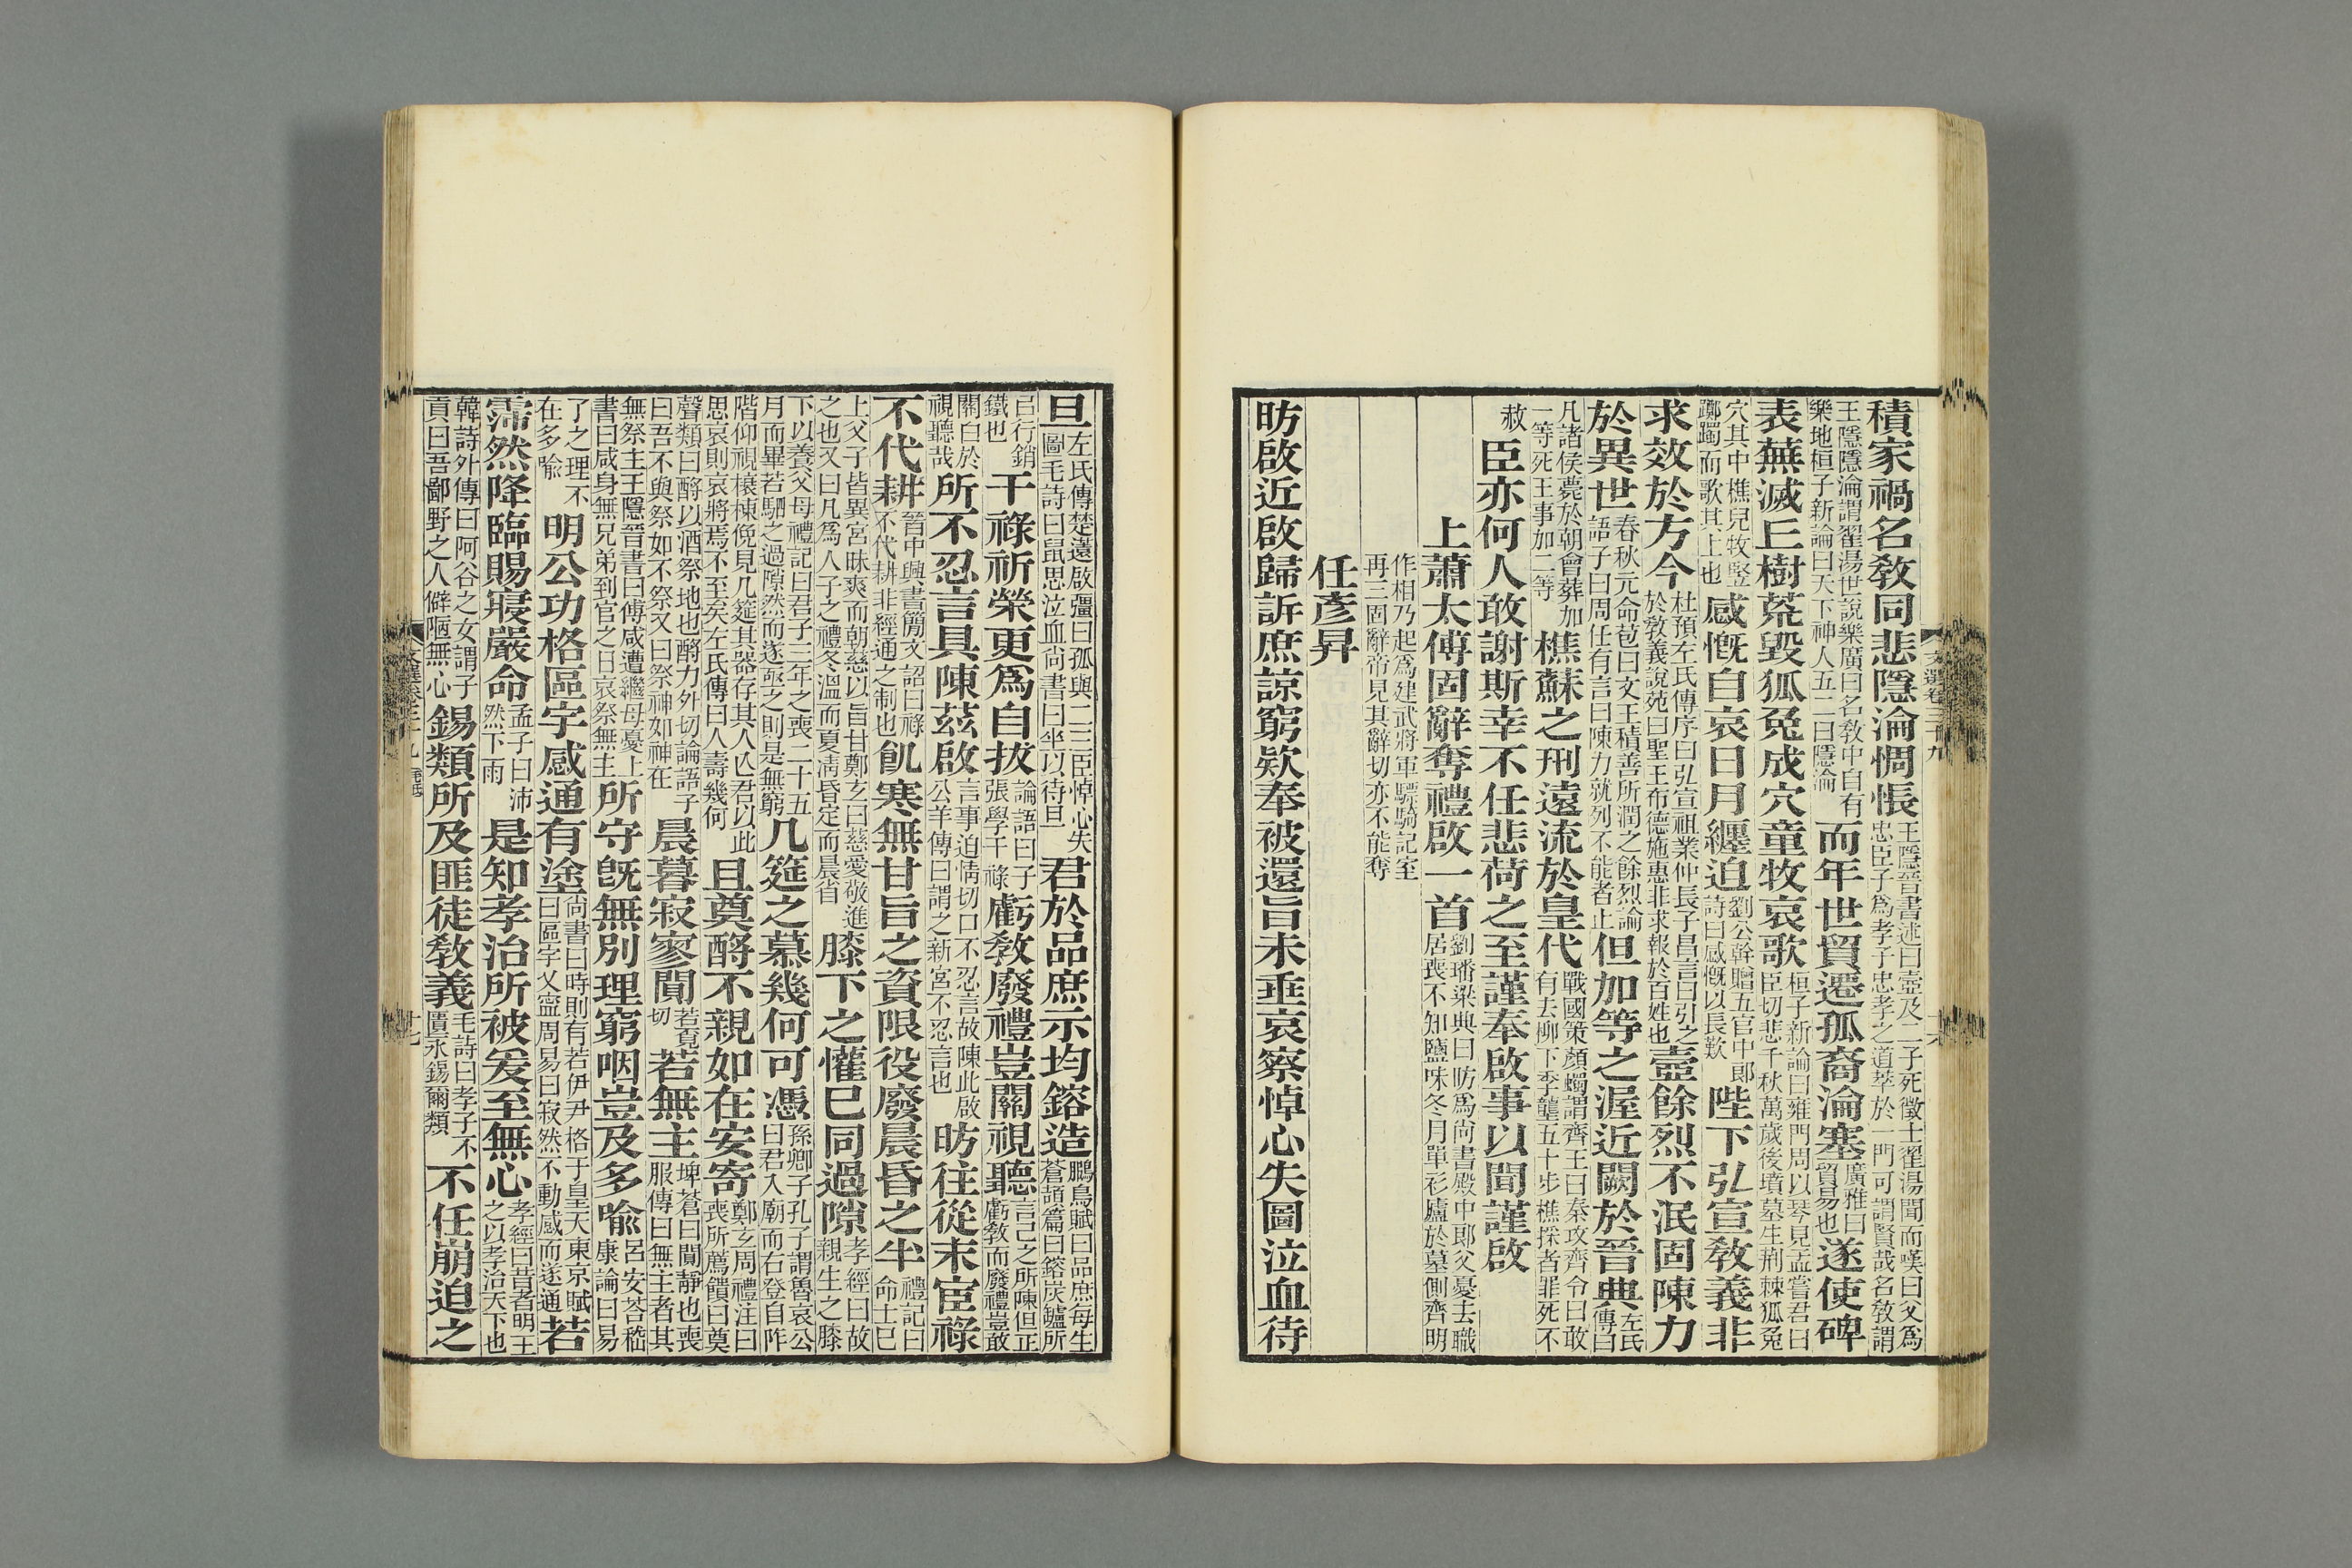 積家禍名敎同悲隱淪惆悵王隱晉書述曰壼及二子死徵士翟湯聞而嘆曰父爲忠臣子爲孝子忠孝之道萃於一門可謂賢哉名敎謂
王隱隱淪謂翟湯世說樂廣曰名敎中自有樂地桓子新論曰天下神人五二曰隱淪而年世貿遷孤裔淪塞廣雅曰貿易也遂使碑
表蕪滅丘樹荒毀狐兔成穴童牧哀歌桓子新論曰雍門周以琴見孟嘗君曰臣切悲千秋萬歲後墳墓生荆棘狐兔
穴其中樵兒牧豎躑躅而歌其上也感慨自哀日月纏迫劉公幹贈五官中郎詩曰感慨以長歎陛下弘宣敎義非
求效於方今杜預左氏傳序曰弘宣祖業仲長子昌言曰引之於敎義說苑曰聖王布德施惠非求報於百姓也壼餘烈不泯固陳力
於異世春秋元命苞曰文王積善所潤之餘烈論語子曰周任有言曰陳力就列不能者止但加等之渥近闕於晉典左氏傳曰
凡諸侯薨於朝會葬加一等死王事加二等樵蘇之刑遠流於皇代戰國策顔蠋謂齊王曰秦攻齊令曰敢有去柳下季壟五十步樵採者罪死不
赦臣亦何人敢謝斯幸不任悲荷之至謹奉啟事以聞謹啟
上蕭太傅固辭奪禮啟一首劉璠梁典曰昉爲尚書殿中郎父憂去職居喪不知鹽味冬月單衫廬於墓側齊明
作相乃起爲建武將軍驃騎記室再三固辭帝見其辭切亦不能奪
任彥昇
昉啟近啟歸訴庶諒窮欵奉被還旨未垂哀察悼心失圖泣血待
旦左氏傳楚薳啟彊曰孤與二三臣悼心失圖毛詩曰鼠思泣血尚書曰坐以待旦君於品庶示均鎔造鵩鳥賦曰品庶每生蒼頡篇曰鎔炭鑪所
以行銷鐵也干祿祈榮更爲自拔論語曰子張學干祿虧敎廢禮豈關視聽言己之所陳但正虧敎而廢禮豈敢
關白於視聽哉所不忍言具陳茲啟言事迫情切口不忍言故陳此啟公羊傳曰謂之新宮不忍言也昉往從末宦祿
不代耕晉中興書簡文詔曰祿不代耕非經通之制也飢寒無甘旨之資限役廢晨昏之半禮記曰命士已
上父子皆異宮昧爽而朝慈以旨甘鄭玄曰慈愛敬進之也又曰凡爲人子之禮冬溫而夏淸昏定而晨省膝下之懽已同過隙孝經曰故親生之膝
下以養父母禮記曰君子三年之喪二十五月而畢若駟之過隙然而遂亟之則是無窮几筵之慕幾何可憑孫卿子孔子謂魯哀公曰君入廟而右登自阼
階仰視榱棟俛見几筵其器存其人亾君以此思哀則哀將焉不至矣左氏傳曰人壽幾何且奠酹不親如在安寄鄭玄周禮注曰喪所薦饋曰奠
聲類曰酹以酒祭地也酹力外切論語子曰吾不與祭如不祭又曰祭神如神在晨暮寂寥闃若覔切若無主埤蒼曰闃靜也喪服傳曰無主者其
無祭主王隱晉書曰傅咸遭繼母憂上書曰咸身無兄弟到官之日哀祭無主所守旣無別理窮咽豈及多喩呂安荅嵇康論曰易
了之理不在多喩明公功格區宇感通有塗尚書曰時則有若伊尹格于皇天東京賦曰區宇乂寧周易曰寂然不動感而遂通若
霈然降臨賜寢嚴命孟子曰沛然下雨是知孝治所被爰至無心孝經曰昔者明王之以孝治天下也
韓詩外傳曰阿谷之女謂子貢曰吾鄙野之人僻陋無心錫類所及匪徒敎義毛詩曰孝子不匱永錫爾類不任崩迫之